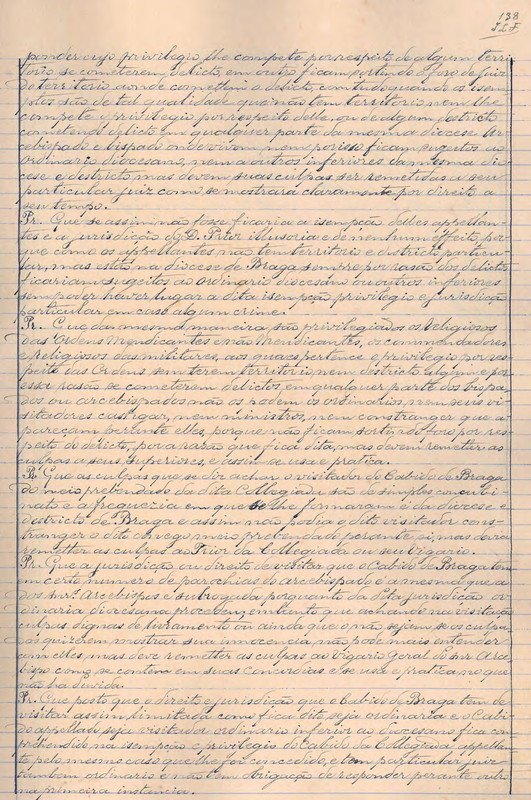 138
ponder cujo privilegio lhe compete por respeito de algum terri-
torio se cometerem delicto, em outro ficam sortindo o foro do Juiz
do territorio aonde comettem o delicto, comtudo quando os isem-
ptos são de tal qualidade que não tem territorio, nem lhe
compete o privilegio por respeito delle, ou de algum destricto
cometendo delicto em qualquer parte da mesma diocese Ar-
cebispado e bispado onde vivem, nem por isso ficam sugeitos ao
Ordinario diocesano, nem a outros inferiores da mesma dio-
cese e destricto, mas devem suas culpas ser remetidas a seu
particular juiz como se mostrará claramente por direito a
seu tempo.
Pr. Que se assim não fosse ficaria a isempção delles appellan-
tes e a jurisdicção do D. Prior illusoria e de nenhum effeito, por-
que como os appellantes não tem territorio e destricto particu-
lar, mas estão na diocese de Braga sempre por rasão dos delictos
ficariam sugeitos ao Ordinario diocesano ou outros inferiores
sem poder haver lugar a dita isempção privilegio e jurisdicção
particular em caso algum crime.
Pr. Que da mesma maneira são privilegiados os Religiosos
das Ordens Mendicantes e não Mendicantes, os commendadores
e religiosos das militares, aos quaes pertence o privilegio por res-
peito das Ordens sem terem territorio nem destricto algum e por
essa rasão se cometerem delictos em qualquer parte dos bispa-
dos ou arcebispados não os podem os ordinarios, nem seus vi-
sitadores castigar, nem ministros, nem constranger que a-
pareçam perante elles, porque não ficam sortindo foro por res-
peito do delicto, pela rasão que fica dita, mas devem remetter as
culpas a seus superiores, e assim se usa e pratica.
Pr. Que as culpas que se diz achar o visitador do Cabido de Braga
do meio prebendado da dita Collegiada são de simples concubi-
nato e a freguezia em que se lhe formaram é da diocese e
destricto de Braga e assim não podia o dito visitador cons-
tranger o dito conego meio prebendado perante si, mas devia
remetter as culpas ao Prior da Collegiada ou seu vigario.
Pr. Que a jurisdicção ou direito de visitar que o Cabido de Braga tem
em certo numero de parochias do arcebispado é a mesma que a
dos snrs. Arcebispos e subrogada porquanto da sua jurisdicção or-
dinaria diocesana procedeu, em tanto que achando na visitação
culpas dignas de livramento ou ainda que o não sejam se os culpa-
dos quizerem mostrar sua innocencia, não pode mais entender
com elles, mas deve remetter as culpas ao Vigario Geral do snr. Arce-
bispo como se contem em suas Concordias e se usa e pratica no que
não ha duvida.
Pr. Que posto que o direito e jurisdicção que o Cabido de Braga tem de
visitar assim limitada como fica dito seja ordinaria e o Cabi-
do appellado seja visitador ordinario inferior ao diocesano fica com-
prehendido na isempção e privilegio do Cabido da Collegiada appellan-
te pelo mesmo caso que lhe foi concedido, e tem particular juiz
tambem ordinario e não tem obrigação de responder perante outro
na primeira instancia.